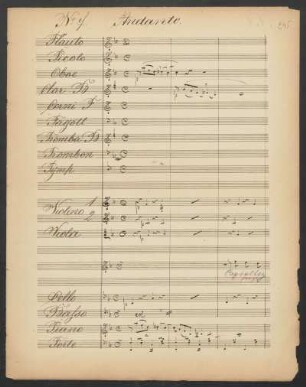 Andante.
Flauto
Picolo
Oboe
Clar. B
Corni F
Fagott
Tromba B
Trombon
Timp.
Violino 1
2
Viola
Cello
Basso
Piano
Forte